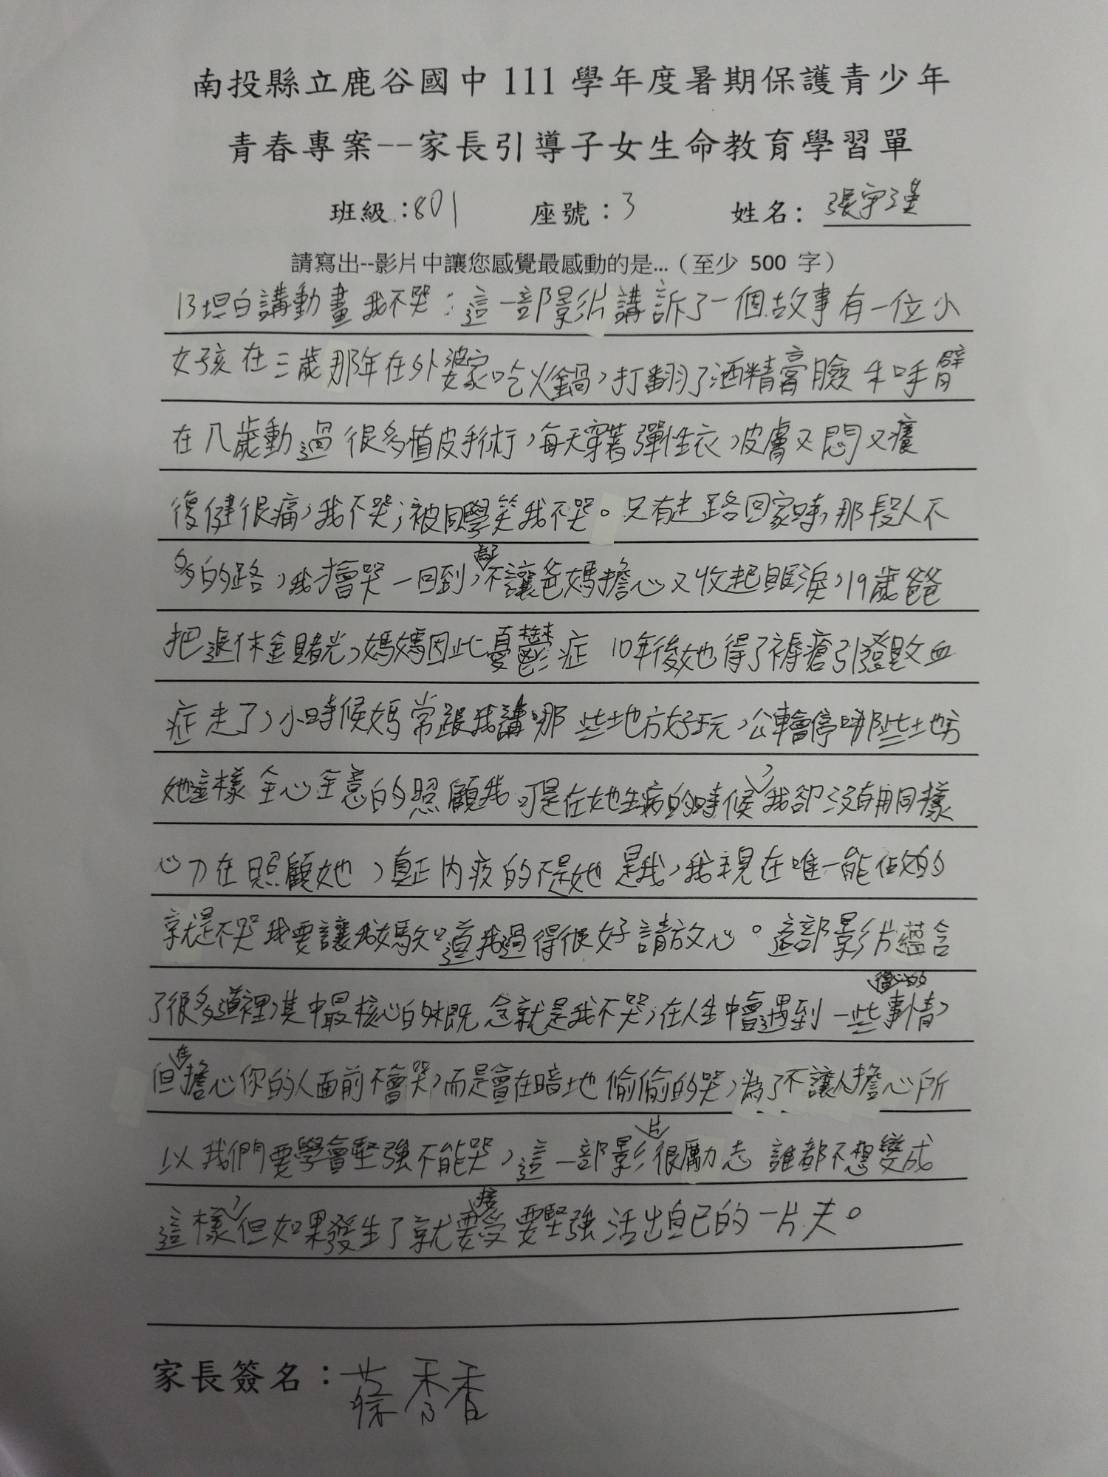 南投縣立鹿谷國中 111 學年度暑期保護青少年
青春專案--家長引導子女生命教育學習單
班級：801 座號：3 姓名：張宇瑾
請寫出--影片中讓您感覺最感動的是...（至少 500 字）
13坦白講動畫 我不哭：這一部影片講訴了一個故事有一位小
女孩在三歲那年在外婆家吃火鍋，打翻了酒精膏臉和手臂
在八歲動過很多植皮手術，每天穿著彈性衣，皮膚又悶又癢
復健很痛，我不哭，被同學笑我不哭。只有走路回家時，那段人不
多的路，我才會哭一回到家，不讓爸媽擔心又收起眼淚，19歲爸爸
把退休金賭光，媽媽因此憂鬱症 10年後她得了褥瘡引發敗血
症走了，小時候媽常跟我講哪些地方好玩，公車會停哪些地方
她這樣全心全意的照顧我，可是在她生病的時候，我卻沒有用同樣
心力在照顧她，真正內疚的不是她是我，我現在唯一能做的
就是不哭我要讓我媽知道我過得很好請放心。這部影片蘊含
了很多道裡，其中最核心的概念就是我不哭，在人生中會遇到一些傷心的事情，
但在擔心你的人面前不會哭，而是會在暗地偷偷的哭，為了不讓人擔心所
以我們要學會堅強不能哭，這一部影片很勵志 誰都不想變成
這樣，但如果發生了就要接受要堅強活出自己的一片天。
家長簽名：蔡香香